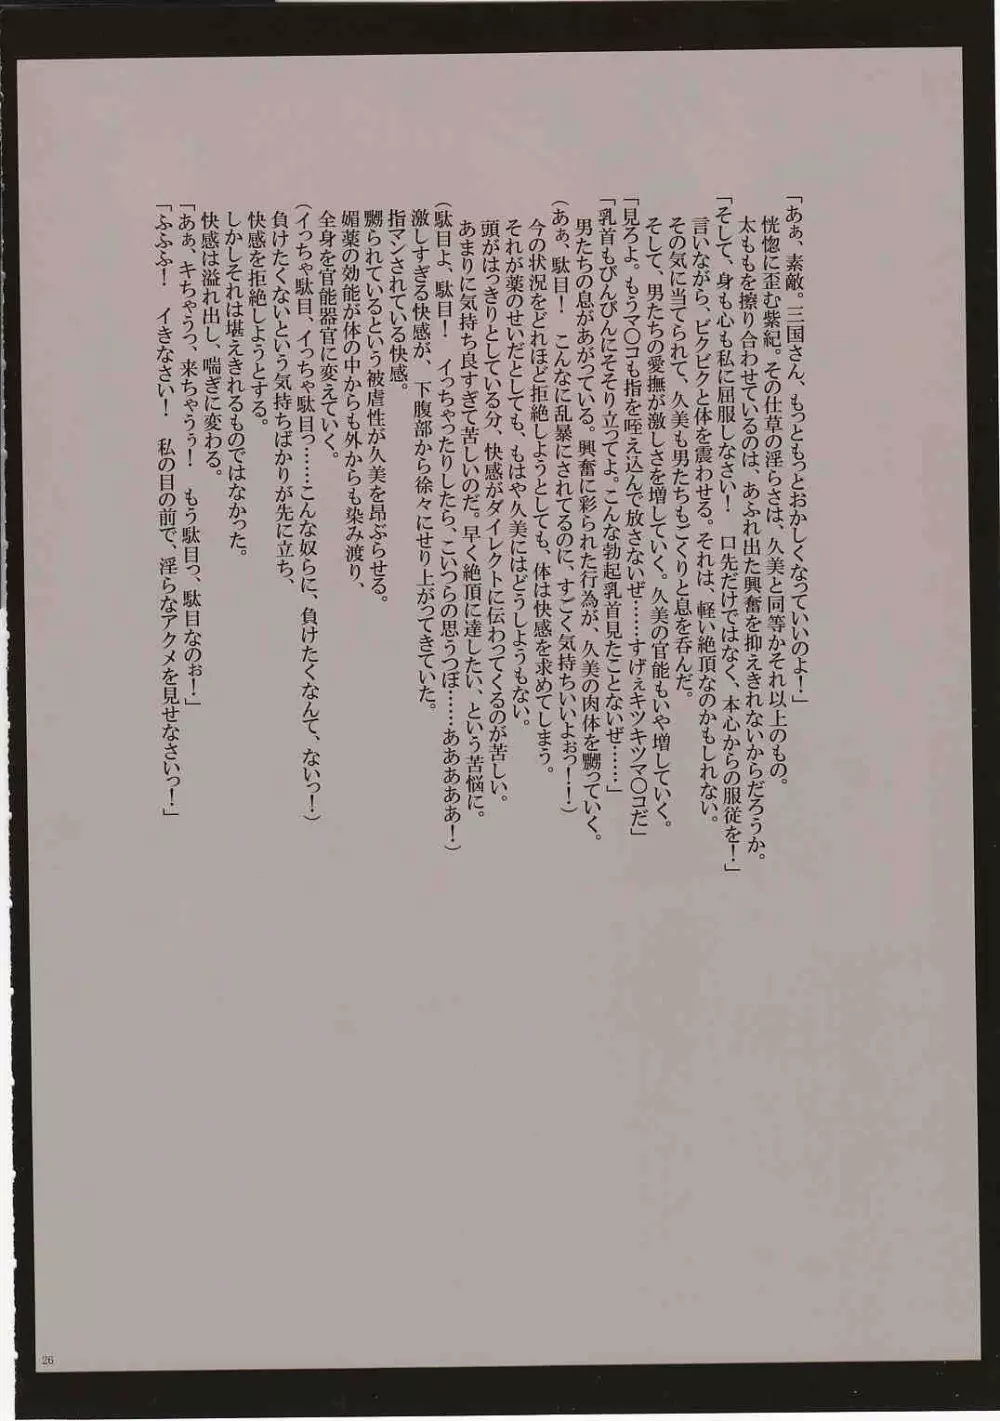 「あぁ、素敵。三国さん、もっともっとおかしくなっていいのよ！」
恍惚に歪む紫紀。その仕草の淫らさは、久美と同等かそれ以上のもの。
太ももを擦り合わせているのは、あふれ出た興奮を抑えきれないからだろうか。
「そして、身も心も私に屈服しなさい！　口先だけではなく、本心からの服従を！」
言いながら、ビクビクと体を震わせる。それは、軽い絶頂なのかもしれない。
その気に当てられて、久美も男たちもごくりと息を呑んだ。
そして、男たちの愛撫が激しさを増していく。久美の官能もいや増していく。
「見ろよ。もうマ〇コも指を咥え込んで放さないぜ……すげぇキツキツマ〇コだ」
「乳首もびんびんにそそり立ってよ。こんな勃起乳首見たことないぜ……」
男たちの息があがっている。興奮に彩られた行為が、久美の肉体を嬲っていく。
（あぁ、駄目！　こんなに乱暴にされてるのに、すごく気持ちいいよぉっ！！）
今の状況をどれほど拒絶しようとしても、体は快感を求めてしまう。
それが薬のせいだとしても、もはや久美にはどうしようもない。
頭がはっきりとしている分、快感がダイレクトに伝わってくるのが苦しい。
あまりに気持ち良すぎて苦しいのだ。早く絶頂に達したい、という苦悩に。
（駄目よ、駄目！　イっちゃったりしたら、こいつらの思うつぼ……ああああ！）
激しすぎる快感が、下腹部から徐々にせり上がってきていた。
指マンされている快感。
嬲られているという被虐性が久美を昂ぶらせる。
媚薬の効能が体の中からも外からも染み渡り、
全身を官能器官に変えていく。
（イっちゃ駄目、イっちゃ駄目っ……こんな奴らに、負けたくなんて、ないっ！）
負けたくないという気持ちばかりが先に立ち、
快感を拒絶しようとする。
しかしそれは堪えきれるものではなかった。
快感は溢れ出し、喘ぎに変わる。
「あぁ、キちゃうっ、来ちゃうぅ！　もう駄目っ、駄目なのぉ！」
「ふふふ！　イきなさい！　私の目の前で、淫らなアクメを見せなさいっ！」
26